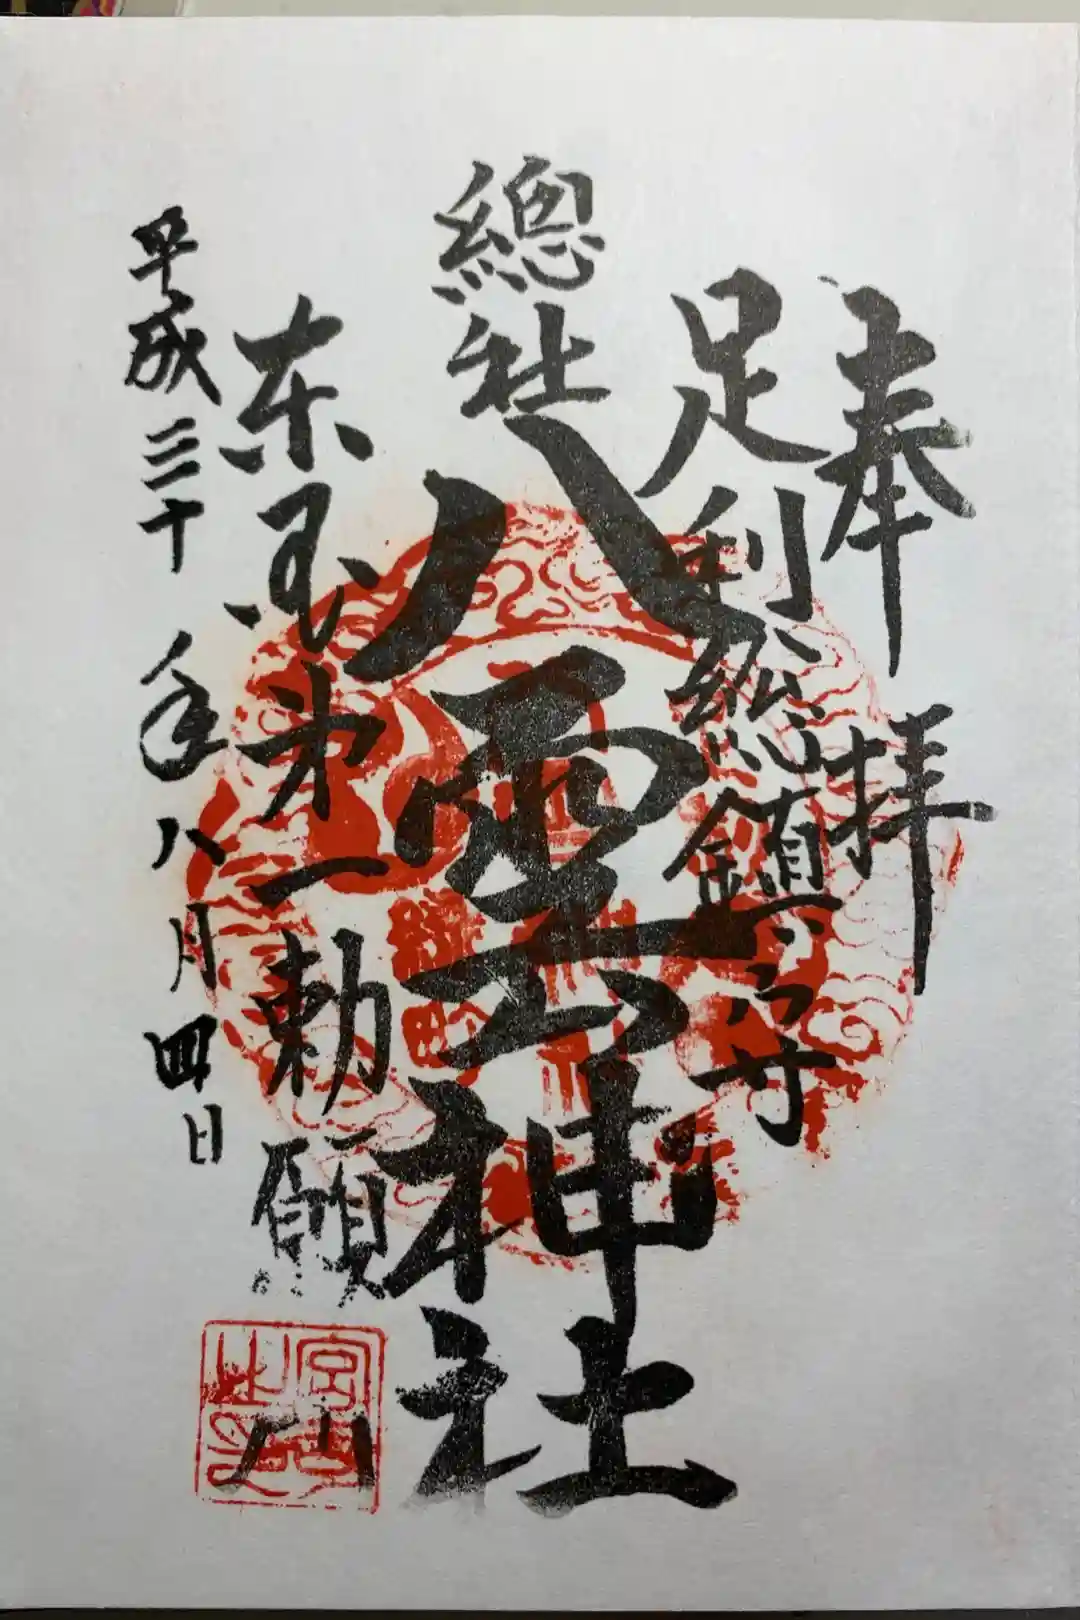 奉拝
足利総鎮守
總社
八雲神社
東国第一勅願
平成三十年八月四日
宮司之印